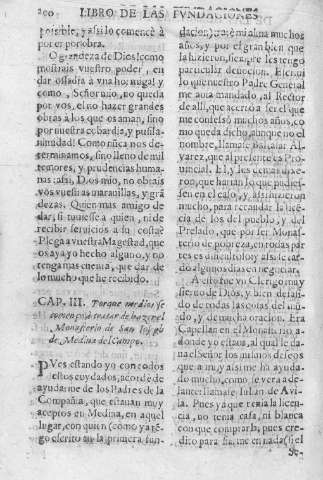 200 LIBRO DE LAS FVNDACIONES
possible, y assi lo comencè à
poner por obra.
O grandeza de Dios! como
mostrais vuestro poder, en
dar ossadia à vna hormiga! y
como, Señor mio, no queda
por vos, el no hazer grandes
obras a los que os aman, sino
por nuestra cobardia, y pusila-
nimidad! Como nũca nos de-
terminamos, sino lleno de mil
temores, y prudencias huma-
nas; assi, Dios mio, no obrais
vos vuestras marauillas, y grã
dezas. Quien mas amigo de
dar, si tuuiesse a quien, ni de
recibir seruicios a su costa?
Plega a vuestra Magestad, que
os aya yo hecho alguno, y no
tenga mas cuenta, que dar de
lo mucho que he recibido.
CAP. III. Porque medios se
començò a tratar de hazer el
Monasterio de San Ioseph
de Medina del Campo.
PVes estando yo con todos
estos cuydados, acordè de
ayudarme de los Padres de la
Compañia, que estauan muy
aceptos en Medina, en aquel
lugar, con quien (como ya tẽ-
go escrito en la primera fun-
dacion) tratè mi alma muchos
años, y por el gran bien que
la hizieron, siempre les tengo
particular deuocion. Escriui
lo que nuestro Padre General
me auia mandado, al Rector
de allí, que acertò a ser el que
me confessò muchos años, co-
mo queda dicho, aunque no el
nombre, llamase Baltasar Al-
varez, que al presente es Pro-
uincial. El, y los demas dixe-
ron, que harian lo que pudies-
sen en el caso, y assi hizieron
mucho, para recaudar la licen-
cia de los del pueblo, y del
Prelado, que por ser Monas-
terio de pobreza, en todas par
tes es dificultoso; y assi se tar-
dò algunos dias en negociar.
A esto fue vn Clerigo muy
sieruo de Dios, y bien desasi-
do de todas las cosas del mũ-
do, y de mucha oracion. Era
Capellan en el Monasterio a-
donde yo estaua, al qual le da-
ua el Señor los mismos deseos
que a mi, y assi me ha ayuda-
do mucho, como se verà ade-
lante: llamase Iulian de Avi-
la. Pues ya que tenia la licen-
cia, no tenia casa, ni blanca
con que comprarla, pues cre-
dito para fiarme en nada (si el
Se-